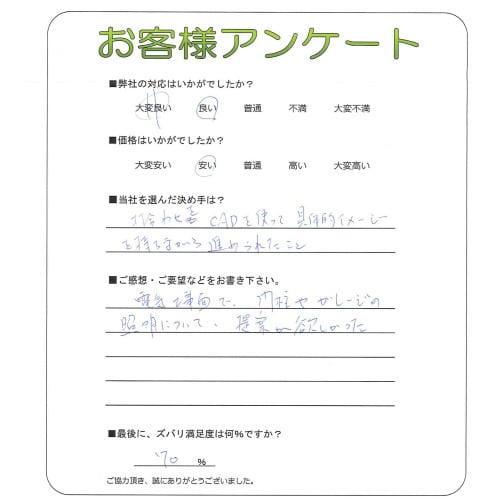 お客様アンケート
■弊社の対応はいかがでしたか?
大変良い 良い 普通 不満 大変不満
■価格はいかがでしたか?
大変安い 安い 普通 高い 大変高い
■当社を選んだ決め手は?
CADを使って 具体的イメージ
を持ちながら 進められたこと
■ご感想・ご要望などをお書き下さい。
電気 図面で、門柱やガレージの
照明について、提案が欲しかった
■最後に、ズバリ満足度は何%ですか?
70 %
ご協力頂き、誠にありがとうございました。